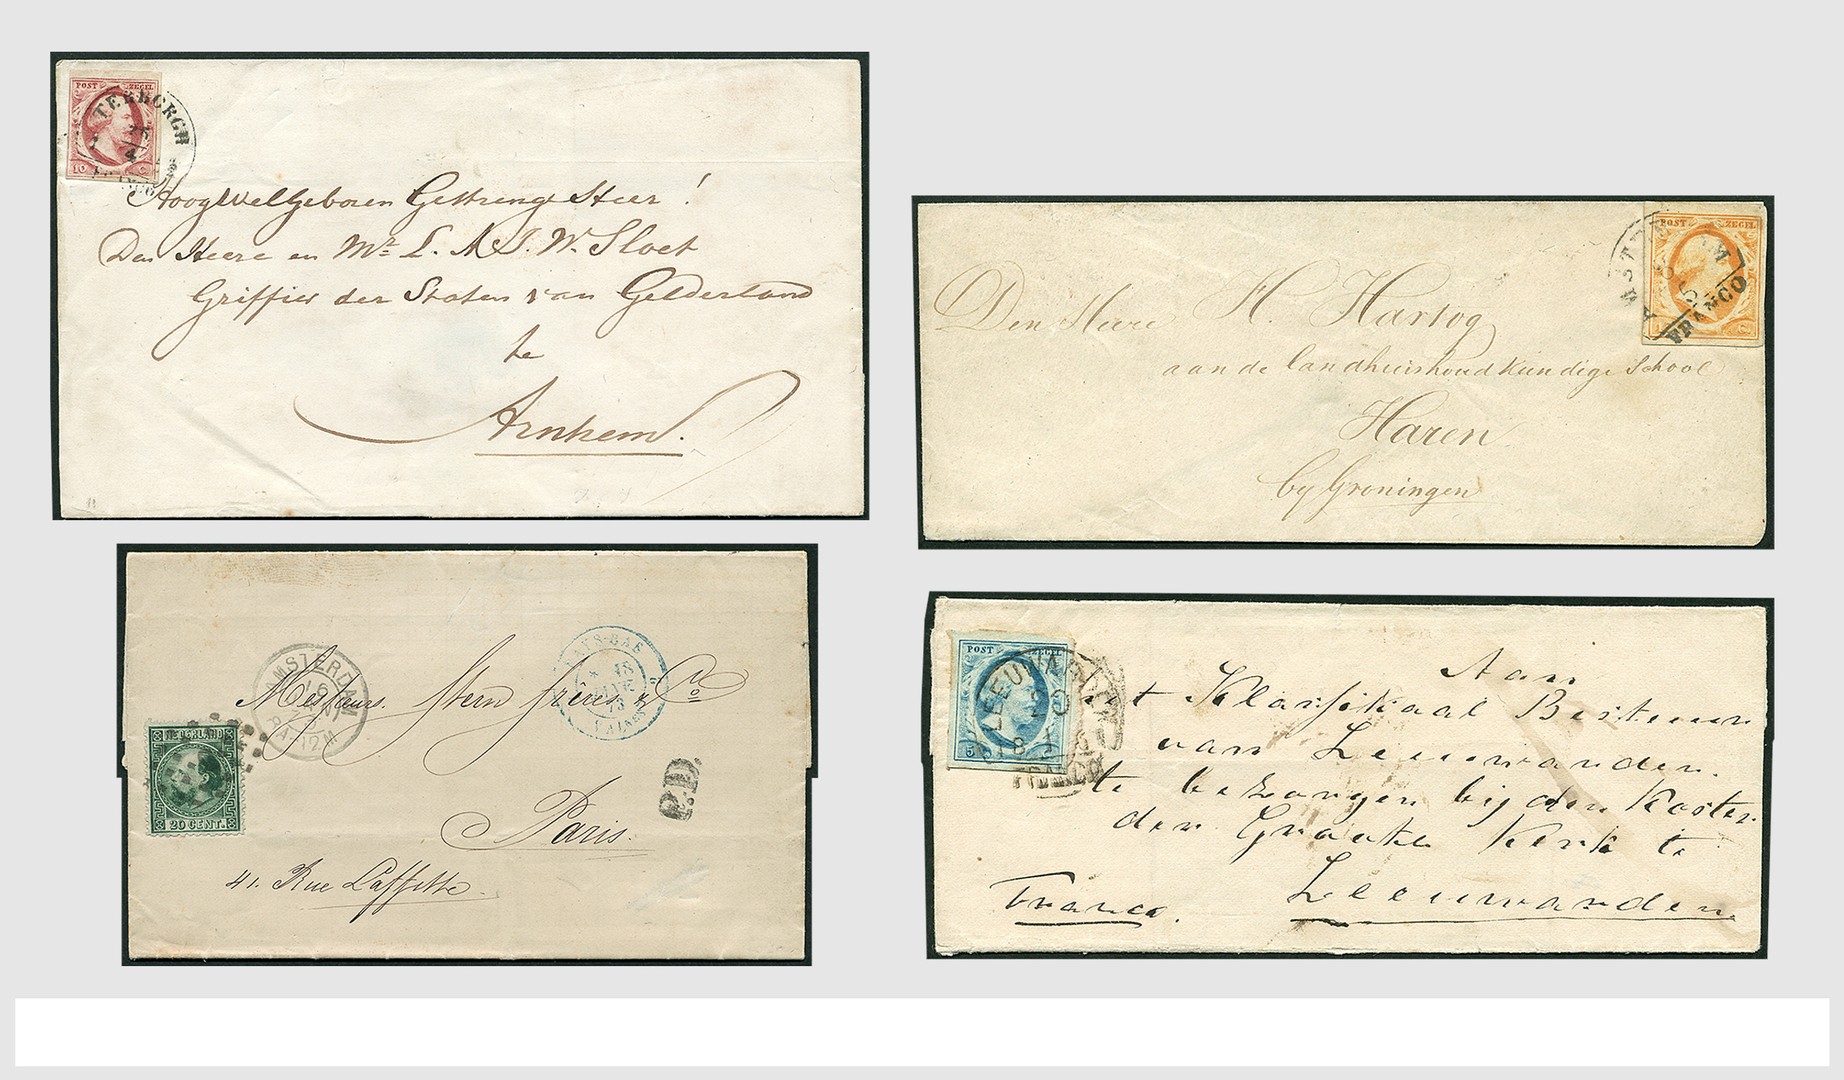 POST ZEGEL
10 C
FRANCO
HoogWelGeboren Gestrenge Heer!
Den Heere en Mr. L. A. J. W. Sloet
Griffier der Staten van Gelderland
te
Arnhem.
POST ZEGEL
FRANCO
Den Heere H. Hartog
aan de landhuishoudkundige School
Haren
by Groningen
AMSTERDAM
PAYS-BAS
Messieurs Stern frères & Co
NEDERLAND
20 CENT.
P.D.
Paris.
41. Rue Laffitte.
POST ZEGEL
5
LEEUWARDEN
FRANCO
Aan
het Klassikaal Bestuur
van Leeuwarden.
te bezorgen bij den Koster
der Groote Kerk te
Leeuwarden
Franco.